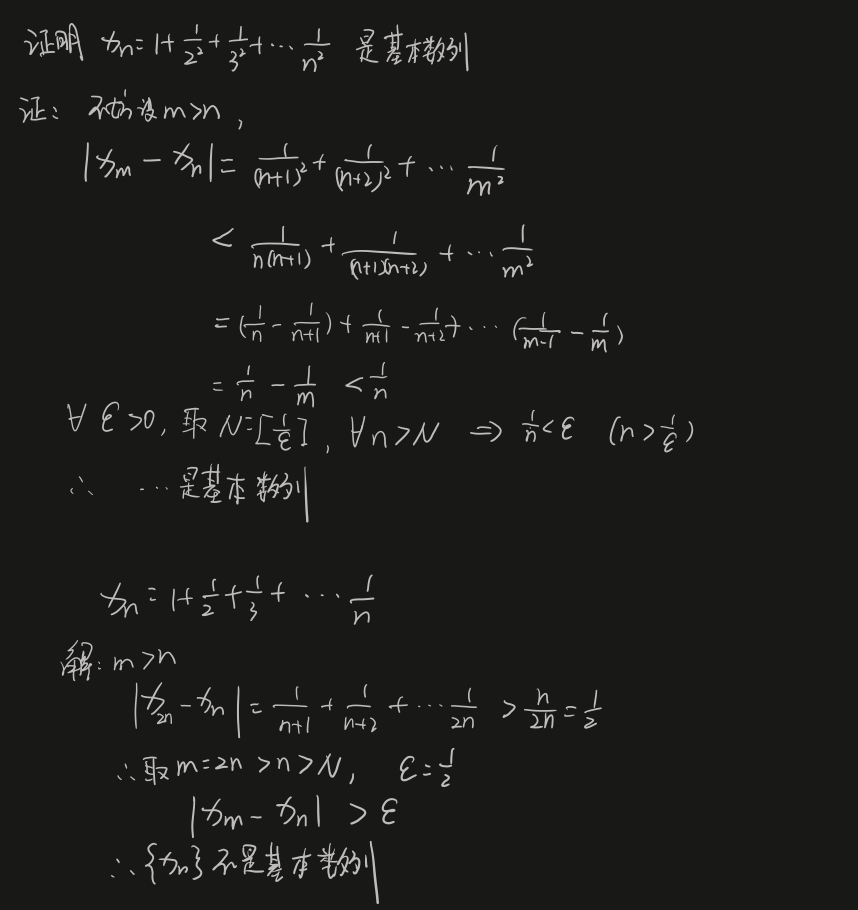 证明 xn=1+1/2²+1/3²+…1/n² 是基本数列
证: 不妨设m>n,
|xm-xn|=1/(n+1)²+1/(n+2)²+…1/m²
<1/n(n+1)+1/(n+1)(n+2)+…1/m²
=(1/n-1/(n+1))+1/(n+1)-1/(n+2)+…(1/(m-1)-1/m)
=1/n-1/m <1/n
∀ε>0, 取N=[1/ε], ∀n>N ⇒ 1/n<ε (n>1/ε)
∴ …是基本数列
xn=1+1/2+1/3+…1/n
解: m>n
|x2n-xn|=1/(n+1)+1/(n+2)+…1/2n >n/2n=1/2
∴取m=2n>n>N, ε=1/2
|xm-xn|>ε
∴{xn}不是基本数列